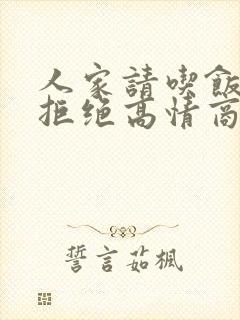 人家請喫飯
拒绝高情商
誓言茹楓